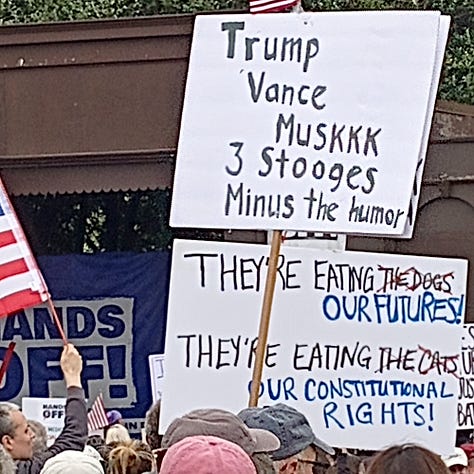 Trump
Vance
MUSKKK
3 Stooges
Minus the humor
THEY'RE EATING THE DOGS
OUR FUTURES!
THEY'RE EATING THE CATS
OUR CONSTITUTIONAL
RIGHTS!
HANDS
OFF!
HANDS
OFF